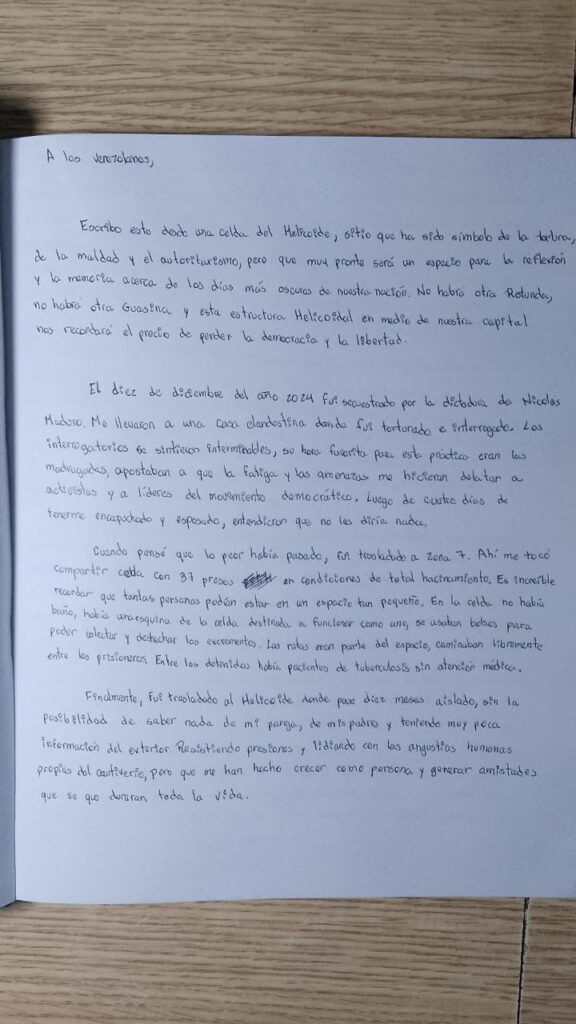 A los venezolanos,
Escribo esto desde una celda del Helicoide, sitio que ha sido símbolo de la tortura,
de la maldad y el autoritarismo, pero que muy pronto será un espacio para la reflexión
y la memoria acerca de los días más oscuros de nuestra nación. No habrá otra Rotunda,
no habrá otra Guasina y esta estructura Helicoidal en medio de nuestra capital
nos recordará el precio de perder la democracia y la libertad.
El diez de diciembre del año 2024 fui secuestrado por la dictadura de Nicolás
Maduro. Me llevaron a una casa clandestina donde fui torturado e interrogado. Los
interrogatorios se sintieron interminables, su hora favorita para esta práctica eran las
madrugadas, apostaban a que la fatiga y las amenazas me hicieran delatar a
activistas y a líderes del movimiento democrático. Luego de cuatro días de
tenerme encapuchado y esposado, entendieron que no les diría nada.
Cuando pensé que lo peor había pasado, fui trasladado a Zona 7. Ahí me tocó
compartir celda con 37 presos en condiciones de total hacinamiento. Es increíble
recordar que tantas personas podían estar en un espacio tan pequeño. En la celda no había
baño, había una esquina de la celda destinada a funcionar como uno, se usaban bolsas para
poder colectar y desechar los excrementos. Las ratas eran parte del espacio, caminaban libremente
entre los prisioneros. Entre los detenidos había pacientes de tuberculosis sin atención médica.
Finalmente, fui trasladado al Helicoide donde pase diez meses aislado, sin la
posibilidad de saber nada de mi pareja, de mis padres y teniendo muy poca
información del exterior. Resistiendo presiones y lidiando con las angustias humanas
propias del cautiverio, pero que me han hecho crecer como persona y generar amistades
que se que duraran toda la vida.